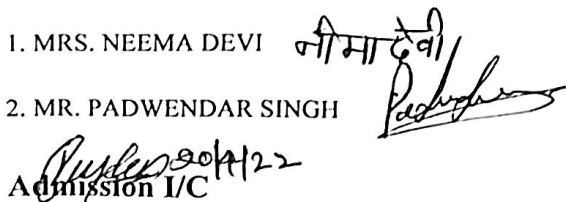 1. MRS. NEEMA DEVI नीमा देवी
2. MR. PADWENDAR SINGH
Admission I/C